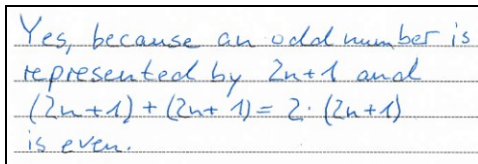 Yes, because an odd number is
represented by 2n+1 and
(2n+1)+(2n+1)=2·(2n+1)
is even.